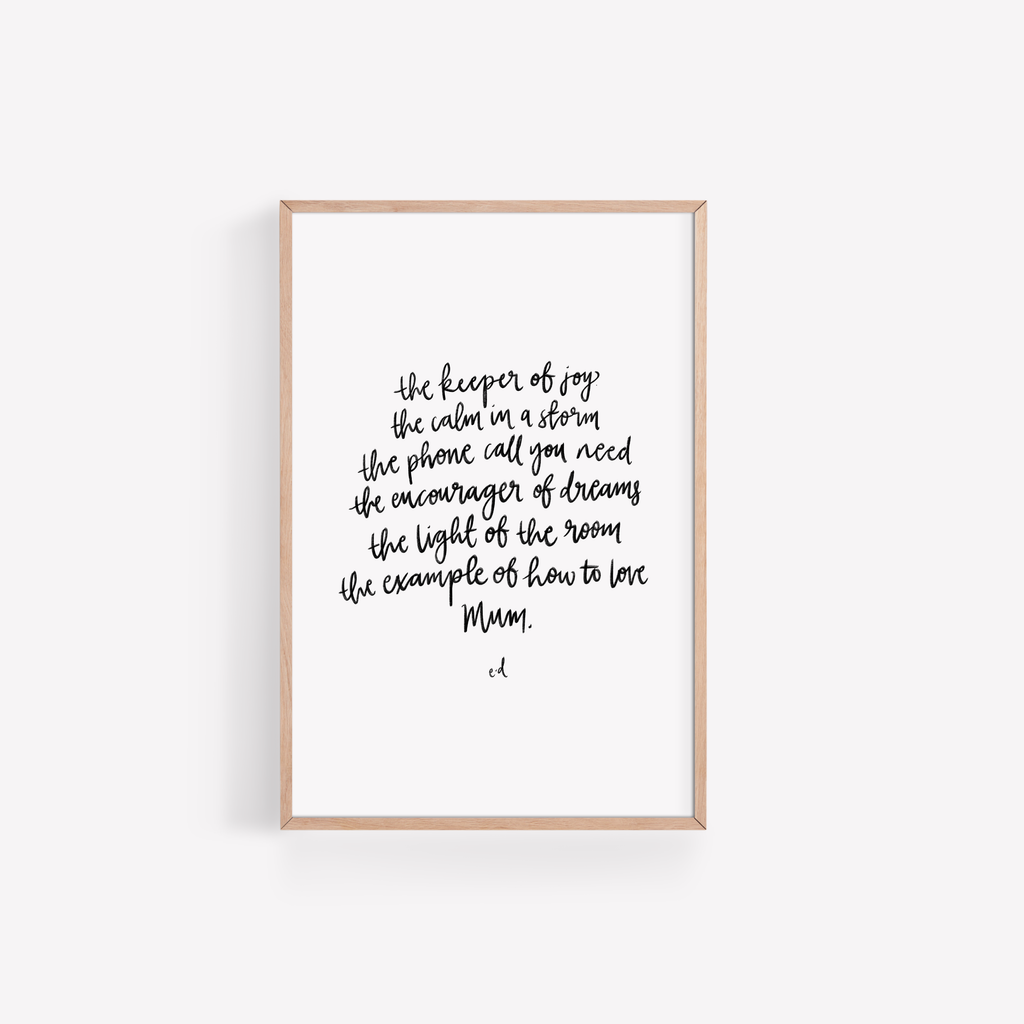 the keeper of joy
the calm in a storm
the phone call you need
the encourager of dreams
the light of the room
the example of how to love
Mum.
e.d